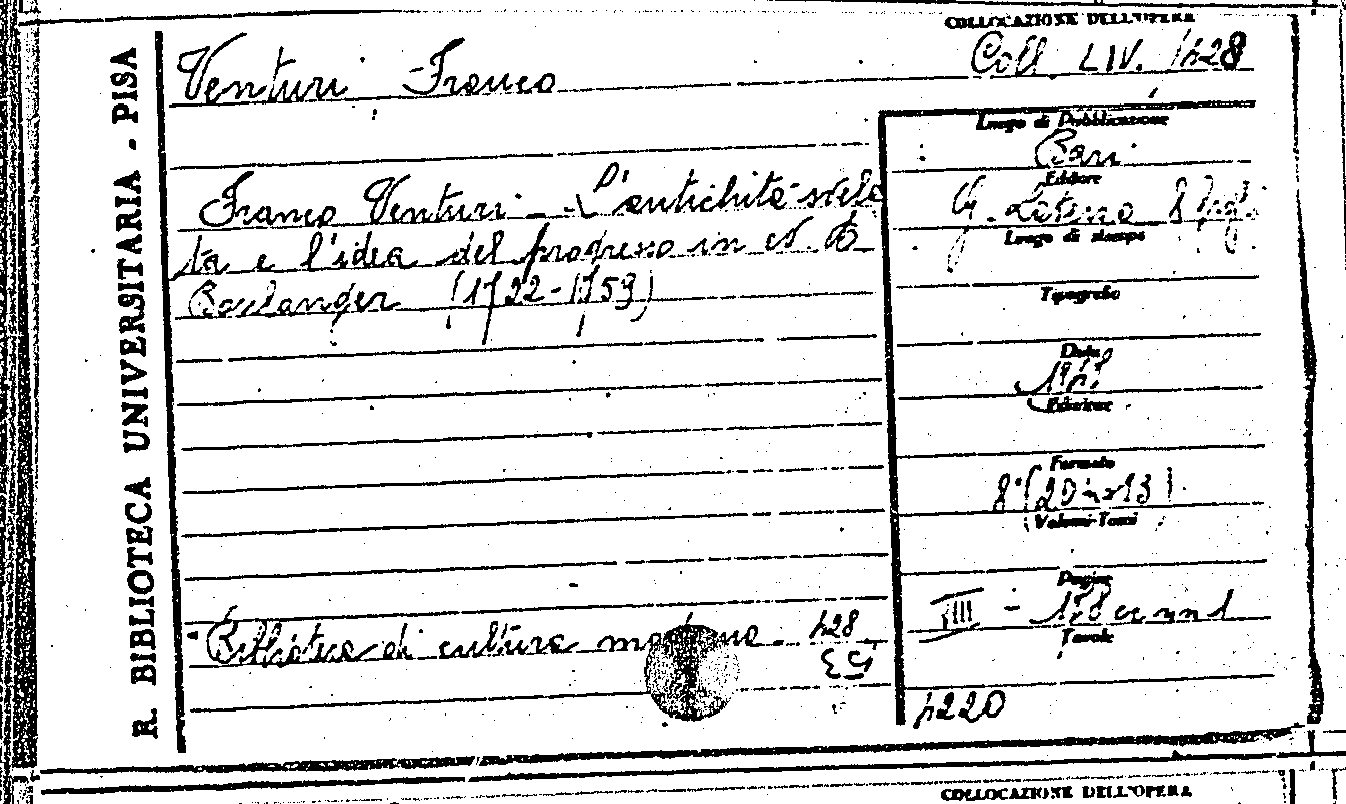 COLLOCAZIONE DELL'OPERA
Coll. LIV. /428
R. BIBLIOTECA UNIVERSITARIA - PISA
Venturi Franco
Franco Venturi - L'antichità svela
ta e l'idea del progresso in N. A.
Boulanger (1722-1759)
Biblioteca di cultura moderna. 428
Luogo di Pubblicazione
Bari
Editore
G. Laterza & figli
Luogo di stampa
Tipografia
Data
Edizione
Formato
8° (20 x 13)
Volumi-Tomi
Pagine
Tavole
4220
COLLOCAZIONE DELL'OPERA